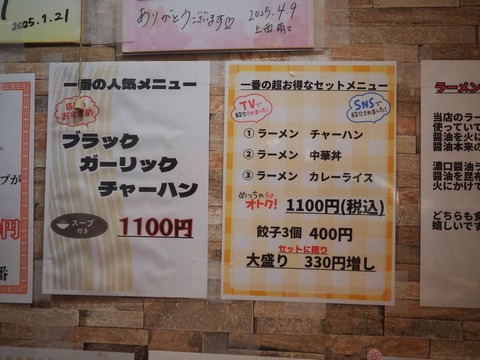 2025.9.21
ありがとうございます♡
2025.4.9
一番の人気メニュー
店長おすすめ
ブラック
ガーリック
チャーハン
スープ
付き
1100円
一番の超お得なセットメニュー
TVで
紹介されました!
SNSで
紹介されました!
① ラーメン チャーハン
② ラーメン 中華丼
③ ラーメン カレーライス
めっちゃ
オトク!
1100円(税込)
餃子3個 400円
セットに限り
大盛り 330円増し
プが
円
番
ラーメン
当店のラー
使ってい
醤油を火に
醤油本来の
濃口醤油ラ
醤油を昆布
火にかけて
どちらも食
嬉しいです